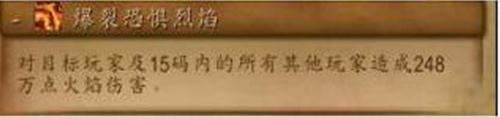 - 爆裂恐惧烈焰
对目标玩家及15码内的所有其他玩家造成248
万点火焰伤害。